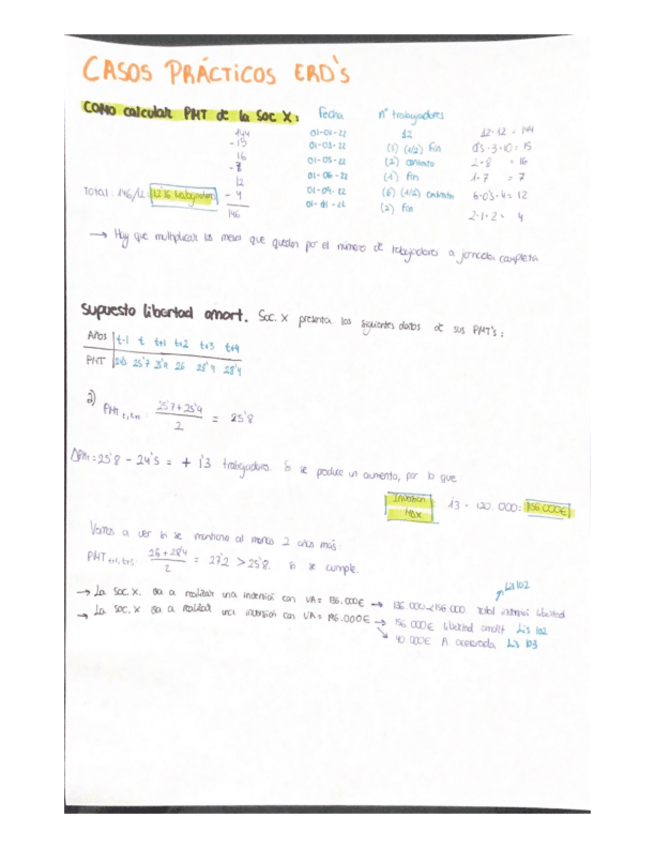 CASOS PRÁCTICOS ERD'S
COMO calcular PMT de la Soc X:
Fecha nº trabajadores
144 01-01-22 12 12·12 = 144
- 15 (1) (1/2) fin 0'5·3·10 = 15
16 (2) contrato 2·8 = 16
01-06-22 (1) fin 1·7 = 7
12 (6) (1/2) 6·0'5·4 = 12
- 4 (2) fin 2·1·2 = 4
146
Total: 146/12: trabajadores
→ Hay que multiplicar los meses que quedan por el número de trabajadores a jornada completa
Supuesto libertad amort. Soc. X presenta los siguientes datos de sus PMT's:
Años t-1 t t+1 t+2 t+3 t+4
PMT 25'7 26 28'4
a)
PMT 25'7+25'9 / 2 = 25'8
ΔPMT = 25'8 - 24'5 = + 1'3 trabajadores. Si se produce un aumento, por lo que:
Inversion Max 1'3 · 120.000: 156.000€
Vamos a ver si se mantiene al menos 2 años más:
PMT 26+28'4 / 2 = 27'2 > 25'8. Si se cumple.
Lis 102
→ La Soc. X. va a realizar una inversión con VA = 136.000€ → 136.000<156.000. Total inversión libertad
→ La Soc. X va a realizar una inversión con VA = 196.000€ → 156.000€ libertad amort. Lis 102
↘ 40.000€ A. acelerada Lis 103